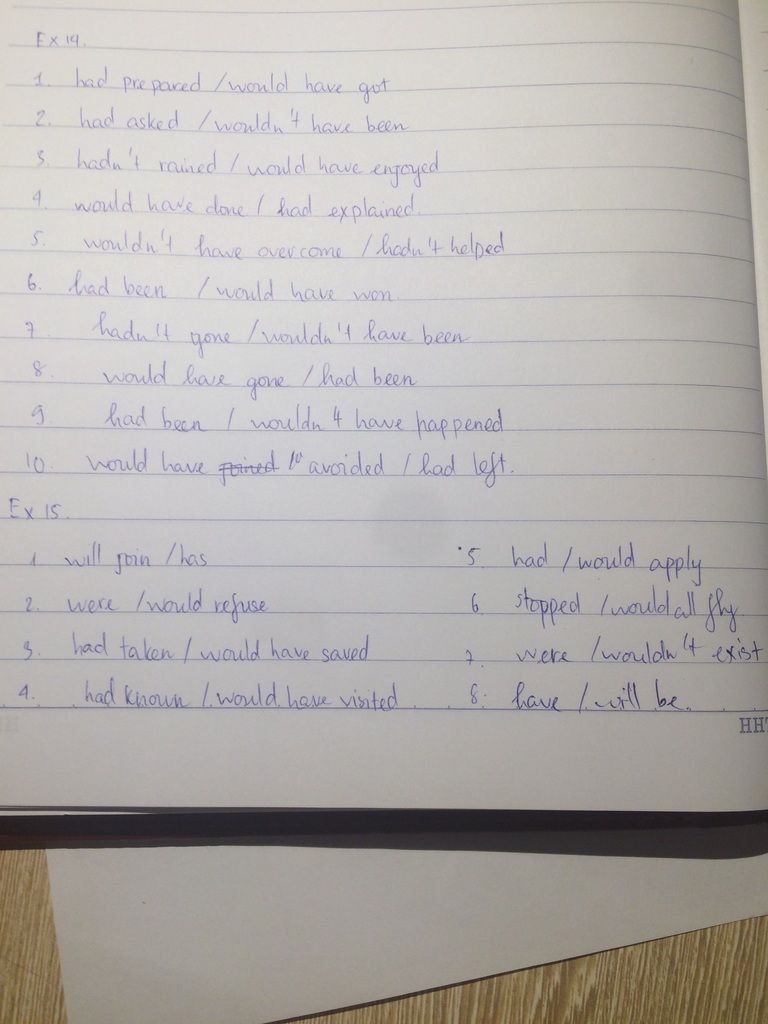 Ex 14.
1. had prepared / would have got
2. had asked / wouldn't have been
3. hadn't rained / would have enjoyed
4. would have done / had explained.
5. wouldn't have overcome / hadn't helped
6. had been / would have won.
7. hadn't gone / wouldn't have been
8. would have gone / had been
9. had been / wouldn't have happened
10. would have joined avoided / had left.
Ex 15.
1 will join / has
2. were / would refuse
3. had taken / would have saved
4. had known / would have visited
5. had / would apply
6. stopped / would all fly
7. were / wouldn't exist
8. have / will be.